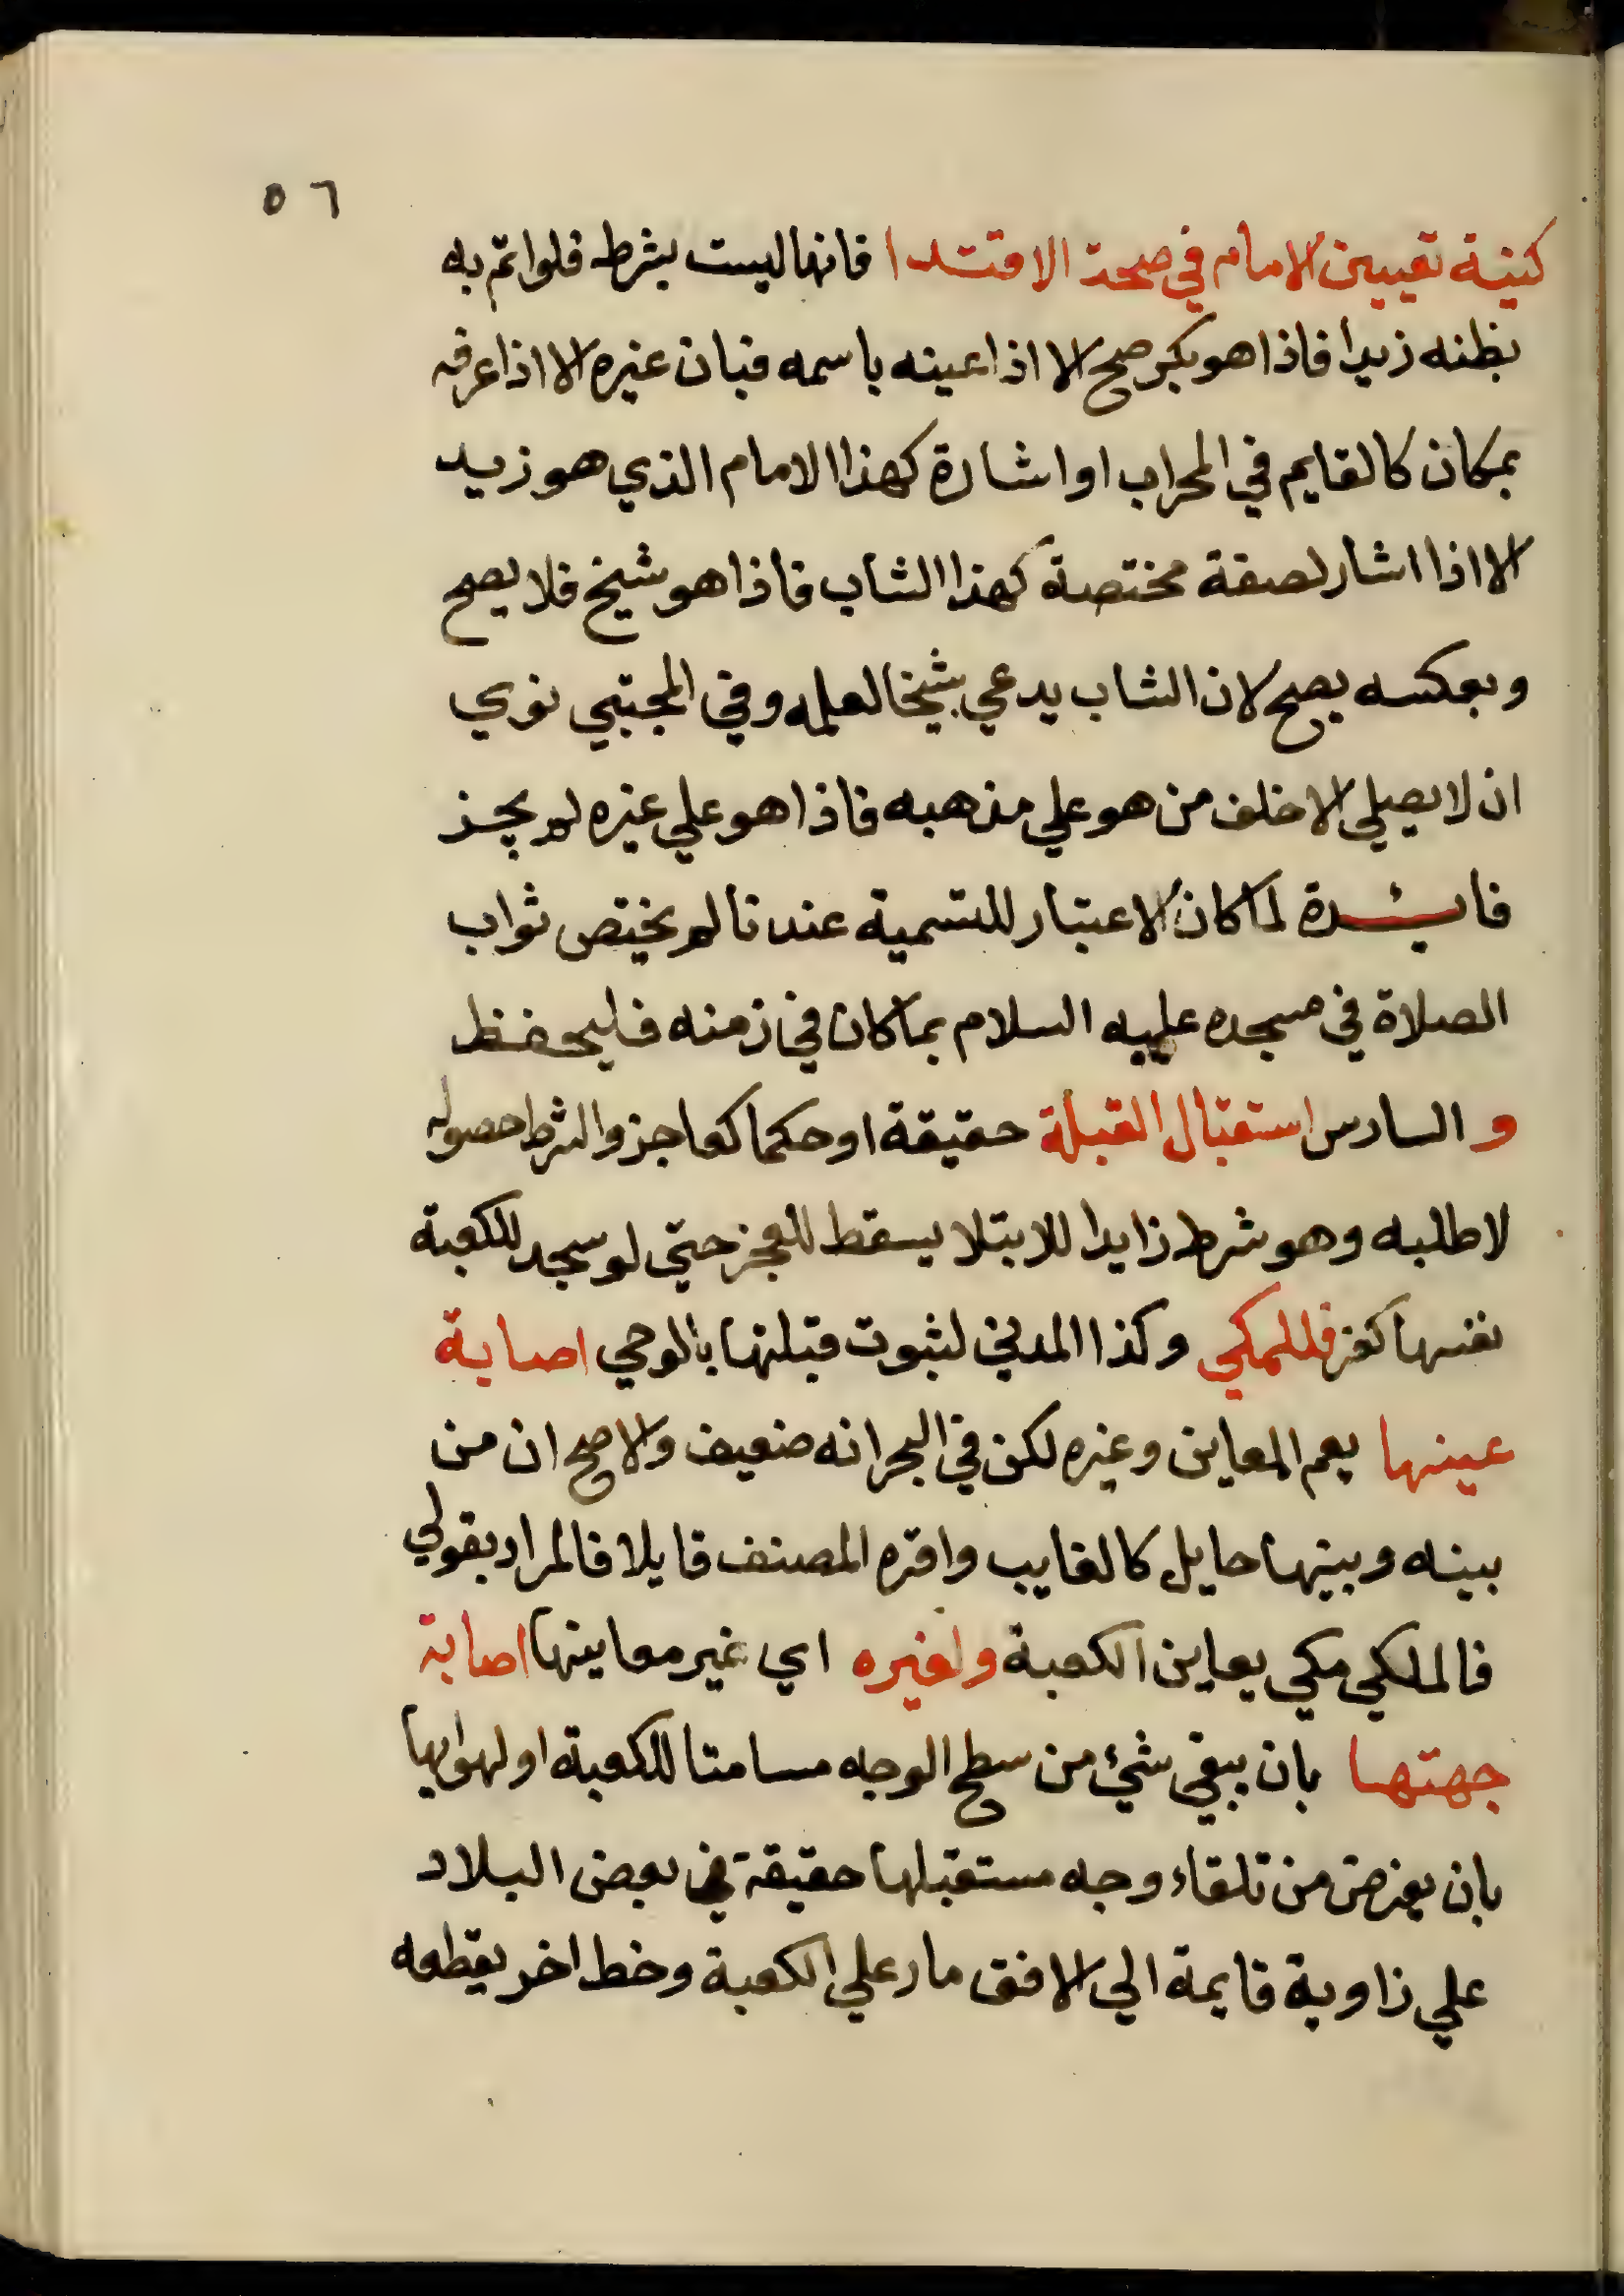 ٥٦
كنية تعيين الامام في صحة الاقتدا فانها ليست بشرط فلو ائتم به
بظنه زيدا فاذا هو بكر صح الا اذا عينه باسمه فبان غيره الا اذا عرفه
بمكان كالقايم في المحراب او اشارة كهذا الامام الذي هو زيد
الا اذا اشار لصفة مختصة كهذا الشاب فاذا هو شيخ فلا يصح
وبعكسه يصح لان الشاب يدعي شيخا لعلمه وفي المجتبي نوي
ان لا يصلي الا خلف من هو علي مذهبه فاذا هو علي غيره لم يجز
فايدة لما كان الاعتبار للتسمية عندنا لم يختص ثواب
الصلاة في مسجده عليه السلام بما كان في زمنه فليحفظ
والسادس استقبال القبلة حقيقة او حكما كعاجز والشرط حصوله
لا طلبه وهو شرط زايدا للابتلا يسقط للعجز حتي لو سجد للكعبة
نفسها كفر فللمكي وكذا المدني لثبوت قبلتها بالوحي اصابة
عينها يعم المعاين وغيره لكن في البحر انه ضعيف والاصح ان من
بينه وبينها حايل كالغايب واقره المصنف قايلا فالمراد بقولي
فالملكي مكي يعاين الكعبة ولغيره اي غير معاينها اصابة
جهتها بان يبقي شئ من سطح الوجه مسامتا للكعبة او لهوايها
بان يفرض من تلقاء وجه مستقبلها حقيقة في بعض البلاد
علي زاوية قايمة الي الافق مار علي الكعبة وخط اخر يقطعه